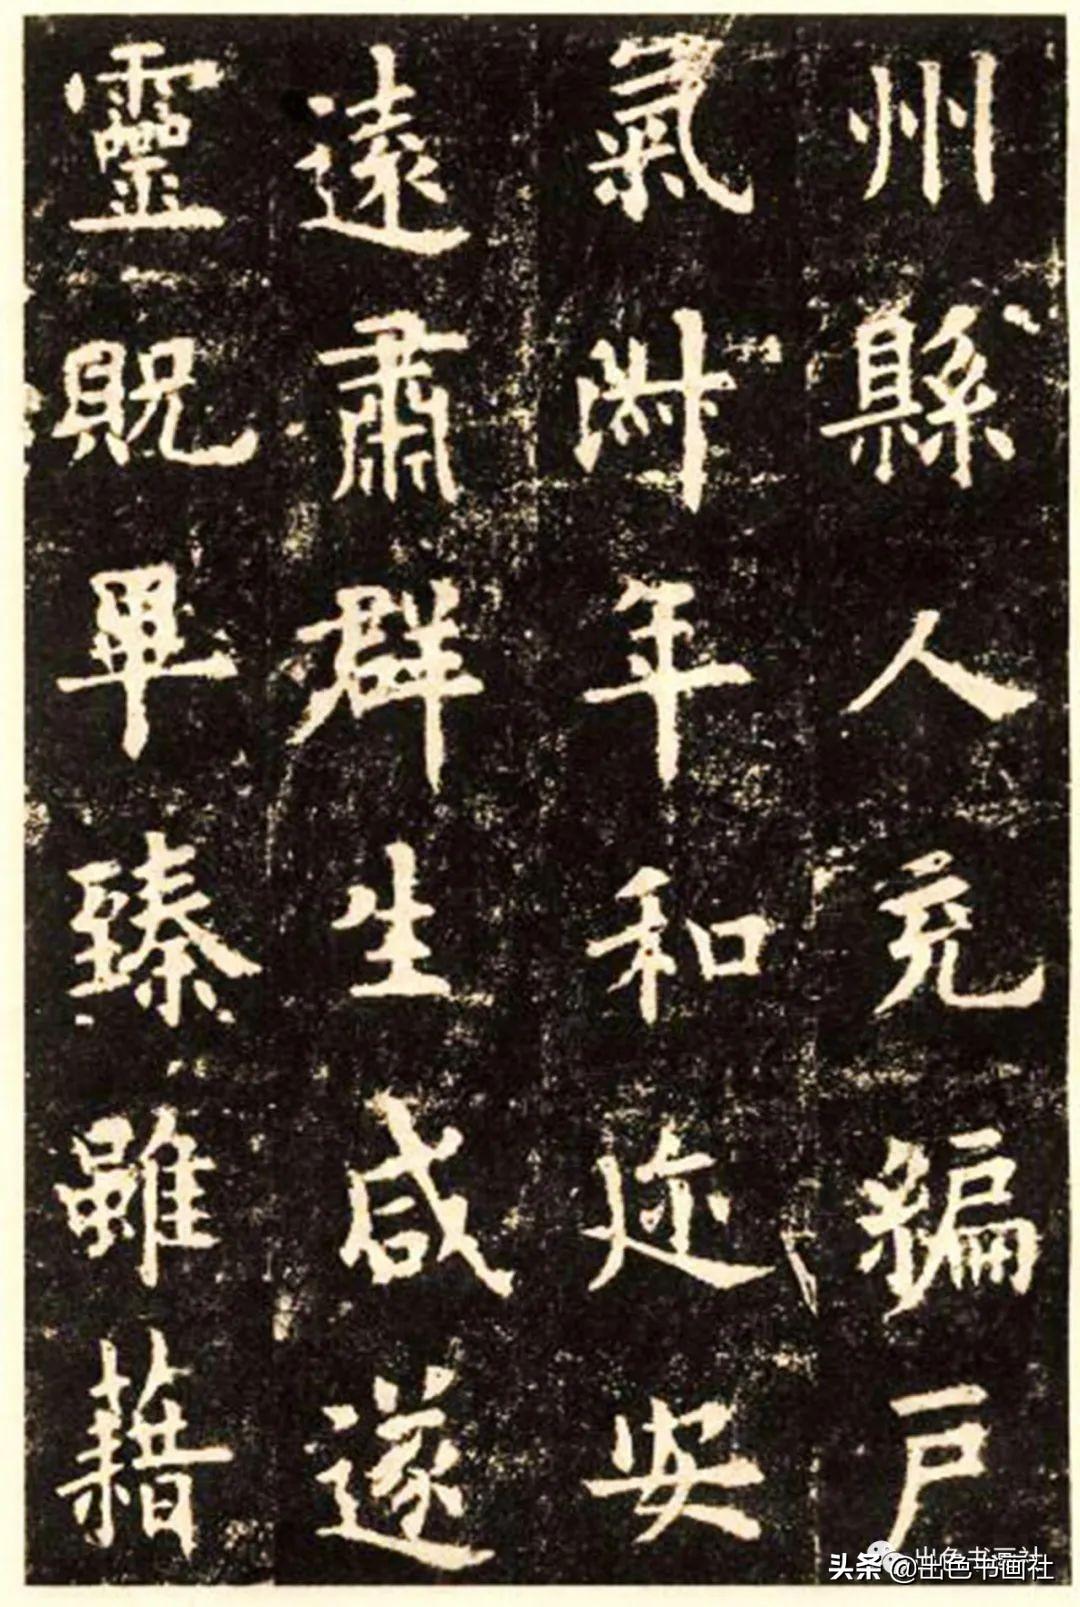 州縣人充編戶
氣淑年和迩安
遠肅群生咸遂
靈貺畢臻雖藉
出色书画社
头条 @出色书画社